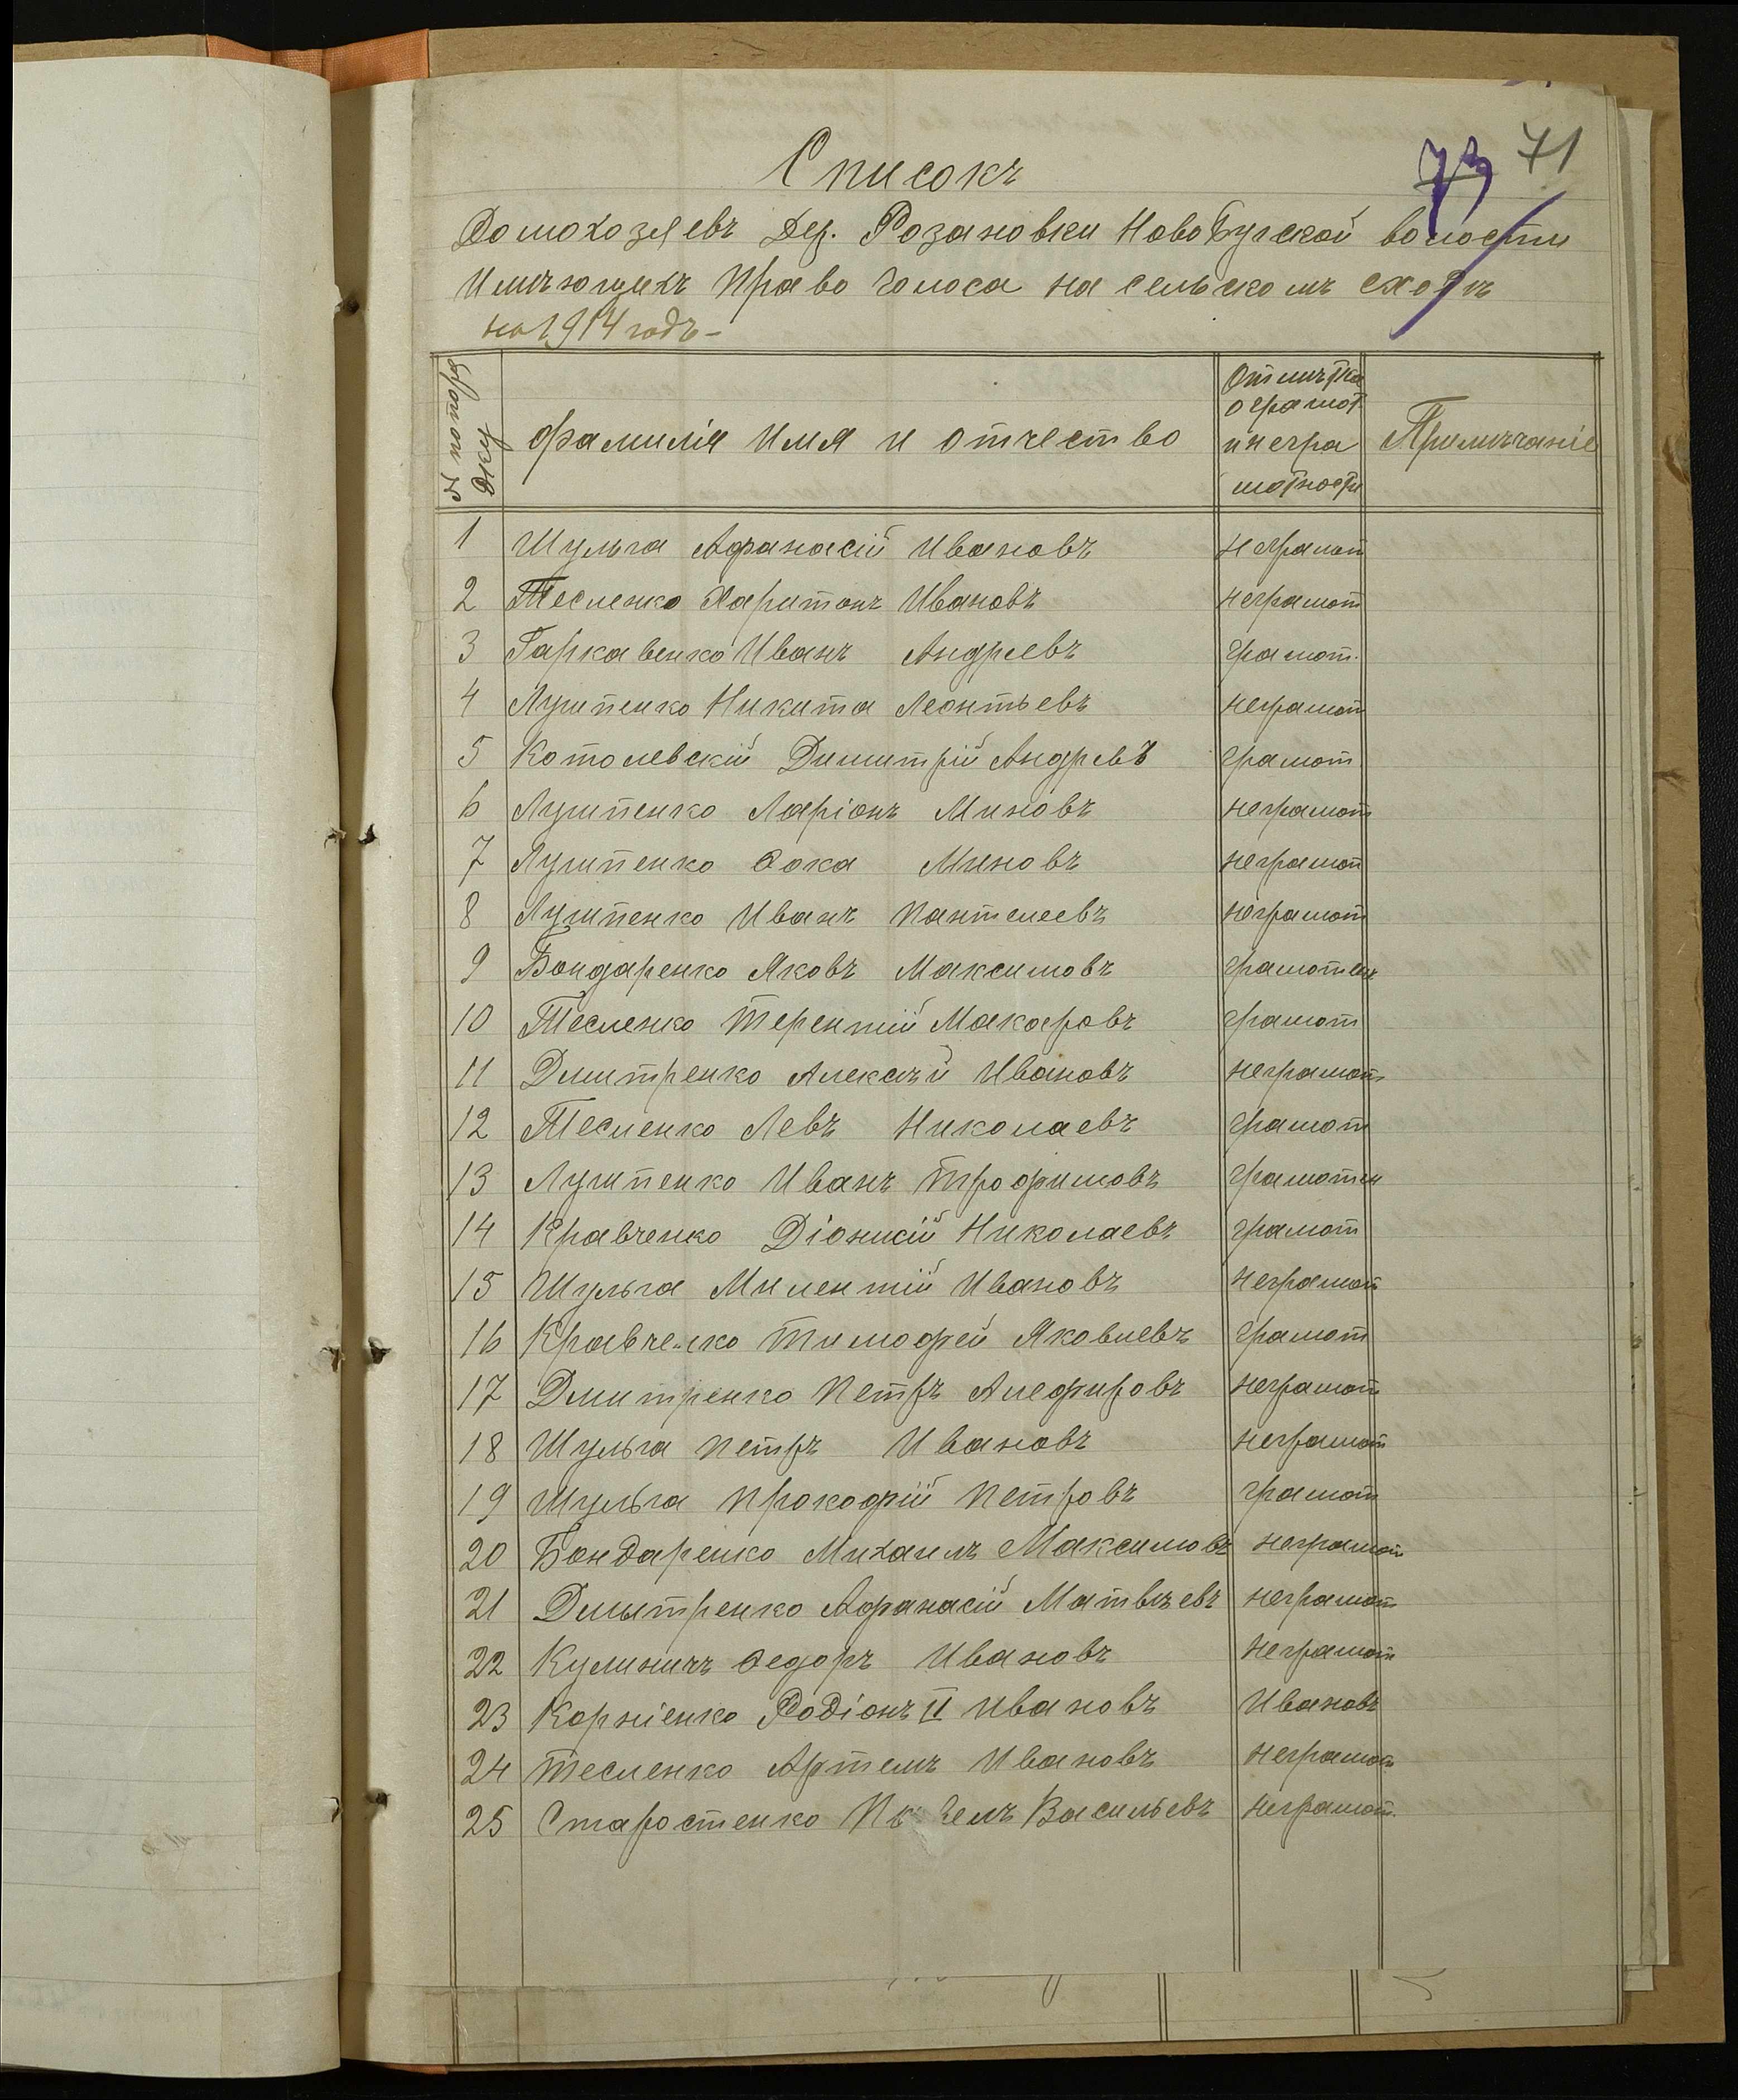 71
73
Списокъ
Домохозяевъ Дер. Розановки НовоБугской волости
Имѣющихъ Право голоса на сельскомъ сходѣ
на 1914 годъ –
№ попоря
дку
Фамилія Имя и отчество
Отмѣтка
о грамот
и негра
мотности
Примѣчаніе
1 Шульга Афанасій Ивановъ неграмот
2 Тесленко Харитонъ Ивановъ неграмот
3 Гаркавенко Иванъ Андреевъ грамот.
4 Лушпенко Никита Леонтьевъ неграмот
5 Котолевскій Димитрій Андреевъ грамот
6 Лушпенко Ларіонъ Миновъ неграмот
7 Лушпенко Фока Миновъ неграмот
8 Лушпенко Иванъ Пантелеевъ неграмот
9 Бондаренко Яковъ Максимовъ грамотенъ
10 Тесленко Терентій Макаровъ грамот
11 Дмитренко Алексѣй Ивановъ неграмот
12 Тесленко Левъ Николаевъ грамот
13 Лушпенко Иванъ Трофимовъ грамотен
14 Кравченко Діонисій Николаевъ грамот
15 Шульга Милентій Ивановъ неграмот
16 Кравченко Тимофей Яковлевъ грамот
17 Дмитренко Петръ Алефировъ неграмот
18 Шульга Петръ Ивановъ неграмот
19 Шульга Прокофій Петровъ грамот
20 Бондаренко Михаилъ Максимовъ неграмот
21 Дмытренко Афанасій Матвѣевъ неграмот
22 Кулиничъ Федоръ Ивановъ неграмот
23 Корніенко Родіонъ II Ивановъ Ивановъ
24 Тесленко Артемъ Ивановъ неграмот
25 Старостенко Васильевъ неграмот.